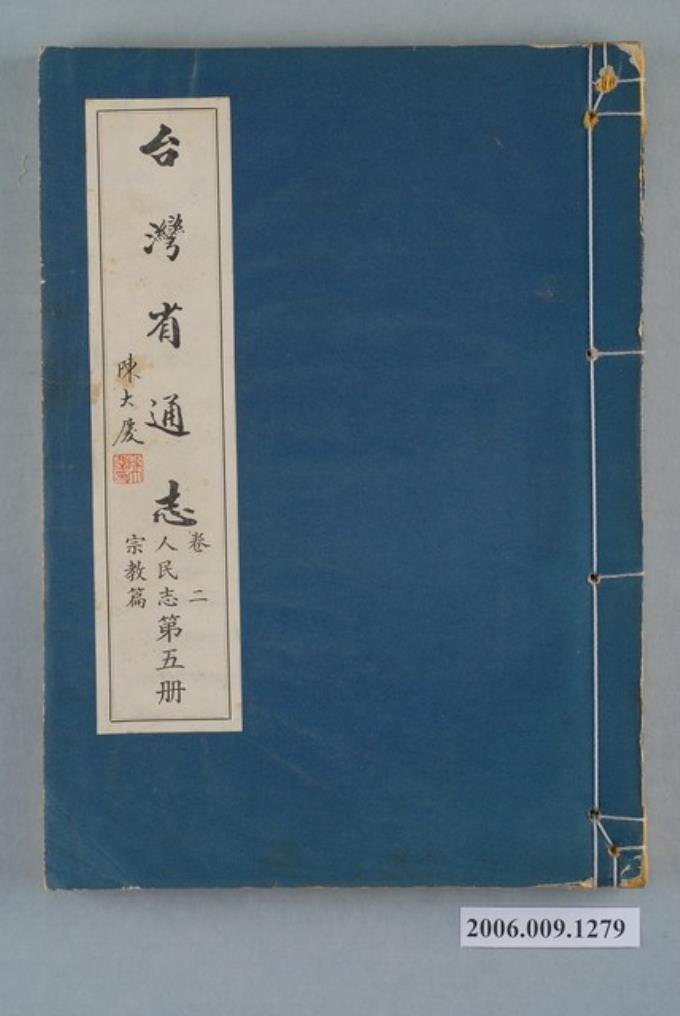 台灣省通志
陳大慶
卷二
人民志第五册
宗教篇
2006.009.1279